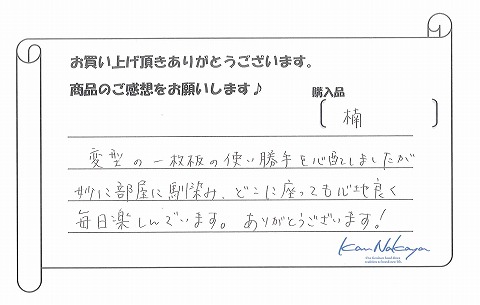 お買い上げ頂きありがとうございます。
商品のご感想をお願いします♪
購入品
[ 楠 ]
変型の一枚板の使い勝手を心配しましたが
妙に部屋に馴染み、どこに座っても心地良く
毎日楽しんでいます。ありがとうございます!
KanNakaya